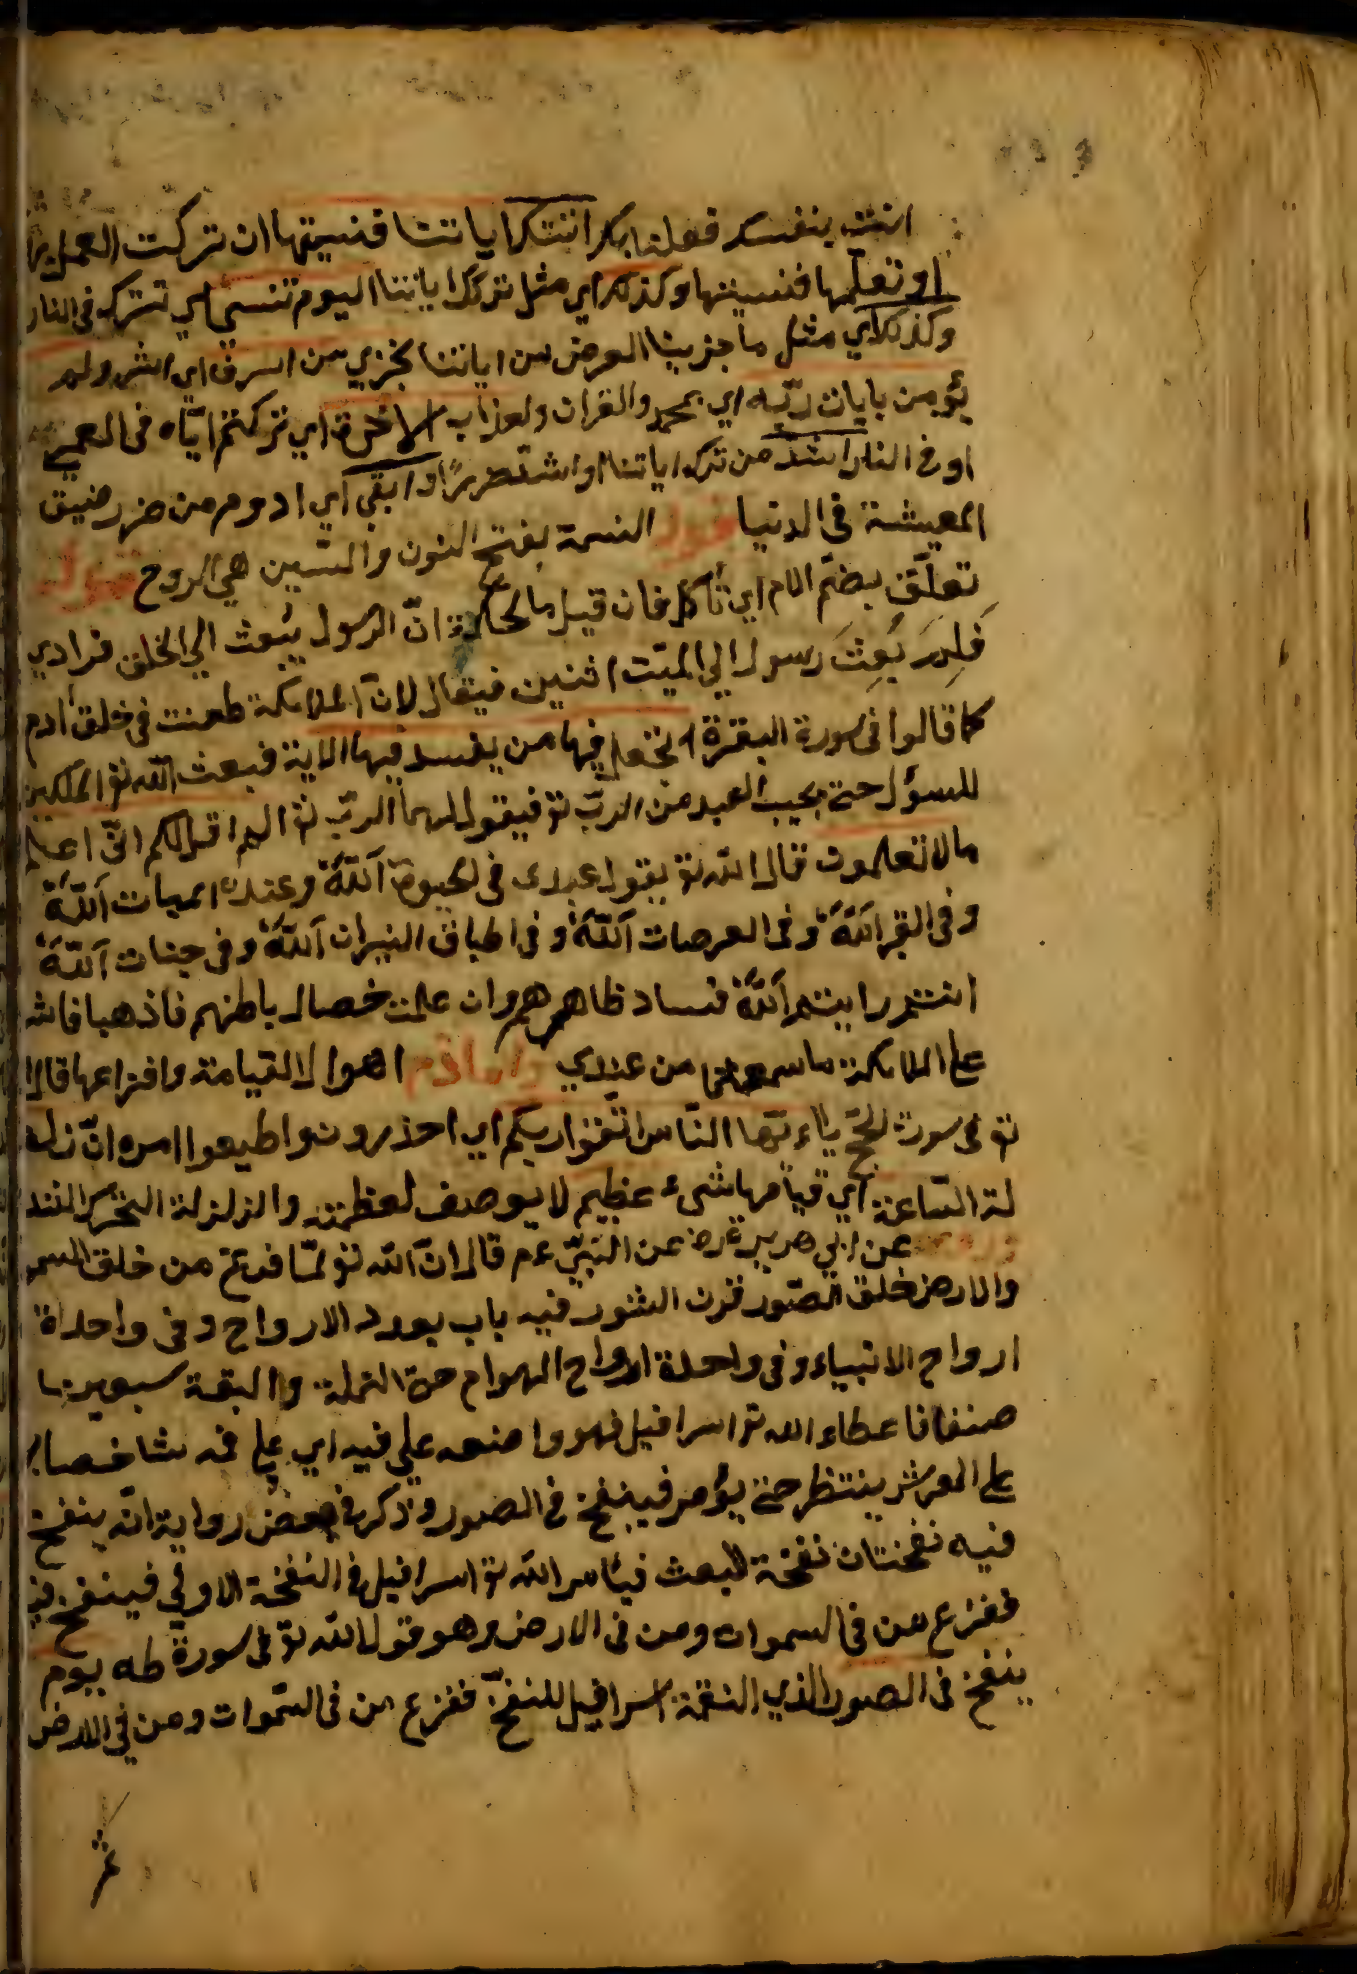 انت بنفسك فعلنا بك اتتك اياتنا فنسيتها ان تركت العمل بها
او تعلمها فنسيتها وكذلك اي مثل تركك اياتنا اليوم تنسى اي تترك في النار
وكذلك اي مثل ما جزينا المعرض من اياتنا نجزي من اسرف اي اشرك ولم
يؤمن بايات ربه اي بمحمد والقران ولعذاب الاخرة اي تركتم اياه في العمى
او في النار اشد من ترك اياتنا او اشد ضررا وابقى اي ادوم من ضرر ضيق
المعيشة في الدنيا قوله النسمة بفتح النون والسين هي الروح قوله
تعلق بضم الام اي تأكل فان قيل ما الحكمة ان الرسول يبعث الى الخلق فرادي
فلم بعث رسول الى الميت اثنين فيقال لان الملايكة طعنت في خلق ادم
كما قالوا في سورة البقرة اتجعل فيها من يفسد فيها الاية فبعث الله تع الملكين
للسؤال حتى يجيب العبد من الرب تع فيقول لهما الرب تع الم اقل لكم اني اعلم
مالا تعلمون قال الله تع يقول عبدى في الحيوة اَللّٰهُ وعند الميات اَللّٰهُ
وفى القبر اَللّٰهُ وفى العرصات اَللّٰهُ وفى اطباق النيران اَللّٰهُ وفى جنات اَللّٰهُ
انتم رايتم اَللّٰهُ فساد ظاهرهم وان علمت خصال باطنهم فاذهبا فاشـ
على الملايكة ما سمعتما من عبدي واما اهوال القيامة وافزاعها قال
تع فى سورة الحج ياءيها الناس اتقوا ربكم اي احذرون واطيعوا امره ان زلـ
لة الساعة اي قيامها شىء عظيم لا يوصف لعظمته والزلزلة التحرك الشد
وروى عن ابي هريرة رض عن النبي عم قال ان الله تع لما فرغ من خلق السم
والارض خلق الصور قرن الثور فيه باب بعدد الارواح وفى واحداة
ارواح الانبياء وفى واحدة ارواح الهوام حتى النملة والبقة سبعين
صنفا فاعطاء الله تع اسرافيل فهو واضعه على فيه اي على فمه شاخصا
على العرش ينتظر حتى يؤمر فينفخ في الصور وذكر في بعض رواية انه ينفخ
فيه نفختان نفخة للبعث فيأمر الله تع اسرافيل في النفخة الاولى فينفخ فيه
ففزع من في السموات ومن في الارض وهو قول الله تع فى سورة طه يوم
ينفخ في الصور الذي التقمة اسرافيل للنفخ ففزع من في السموات ومن في الارض